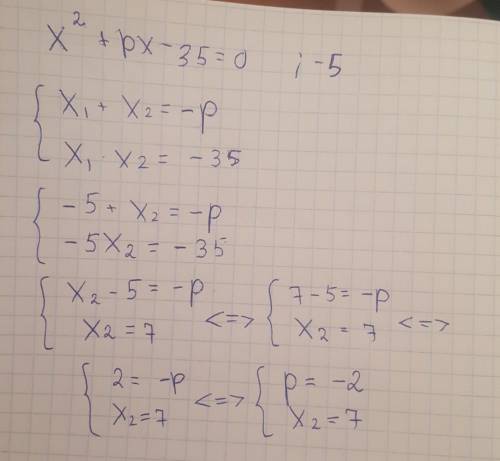 x² + px - 35 = 0 ; -5
{ x₁ + x₂ = -p
x₁ · x₂ = -35
{ -5 + x₂ = -p
-5x₂ = -35
{ x₂ - 5 = -p <=> { 7 - 5 = -p <=>
x₂ = 7 x₂ = 7
{ 2 = -p <=> { p = -2
x₂ = 7 x₂ = 7